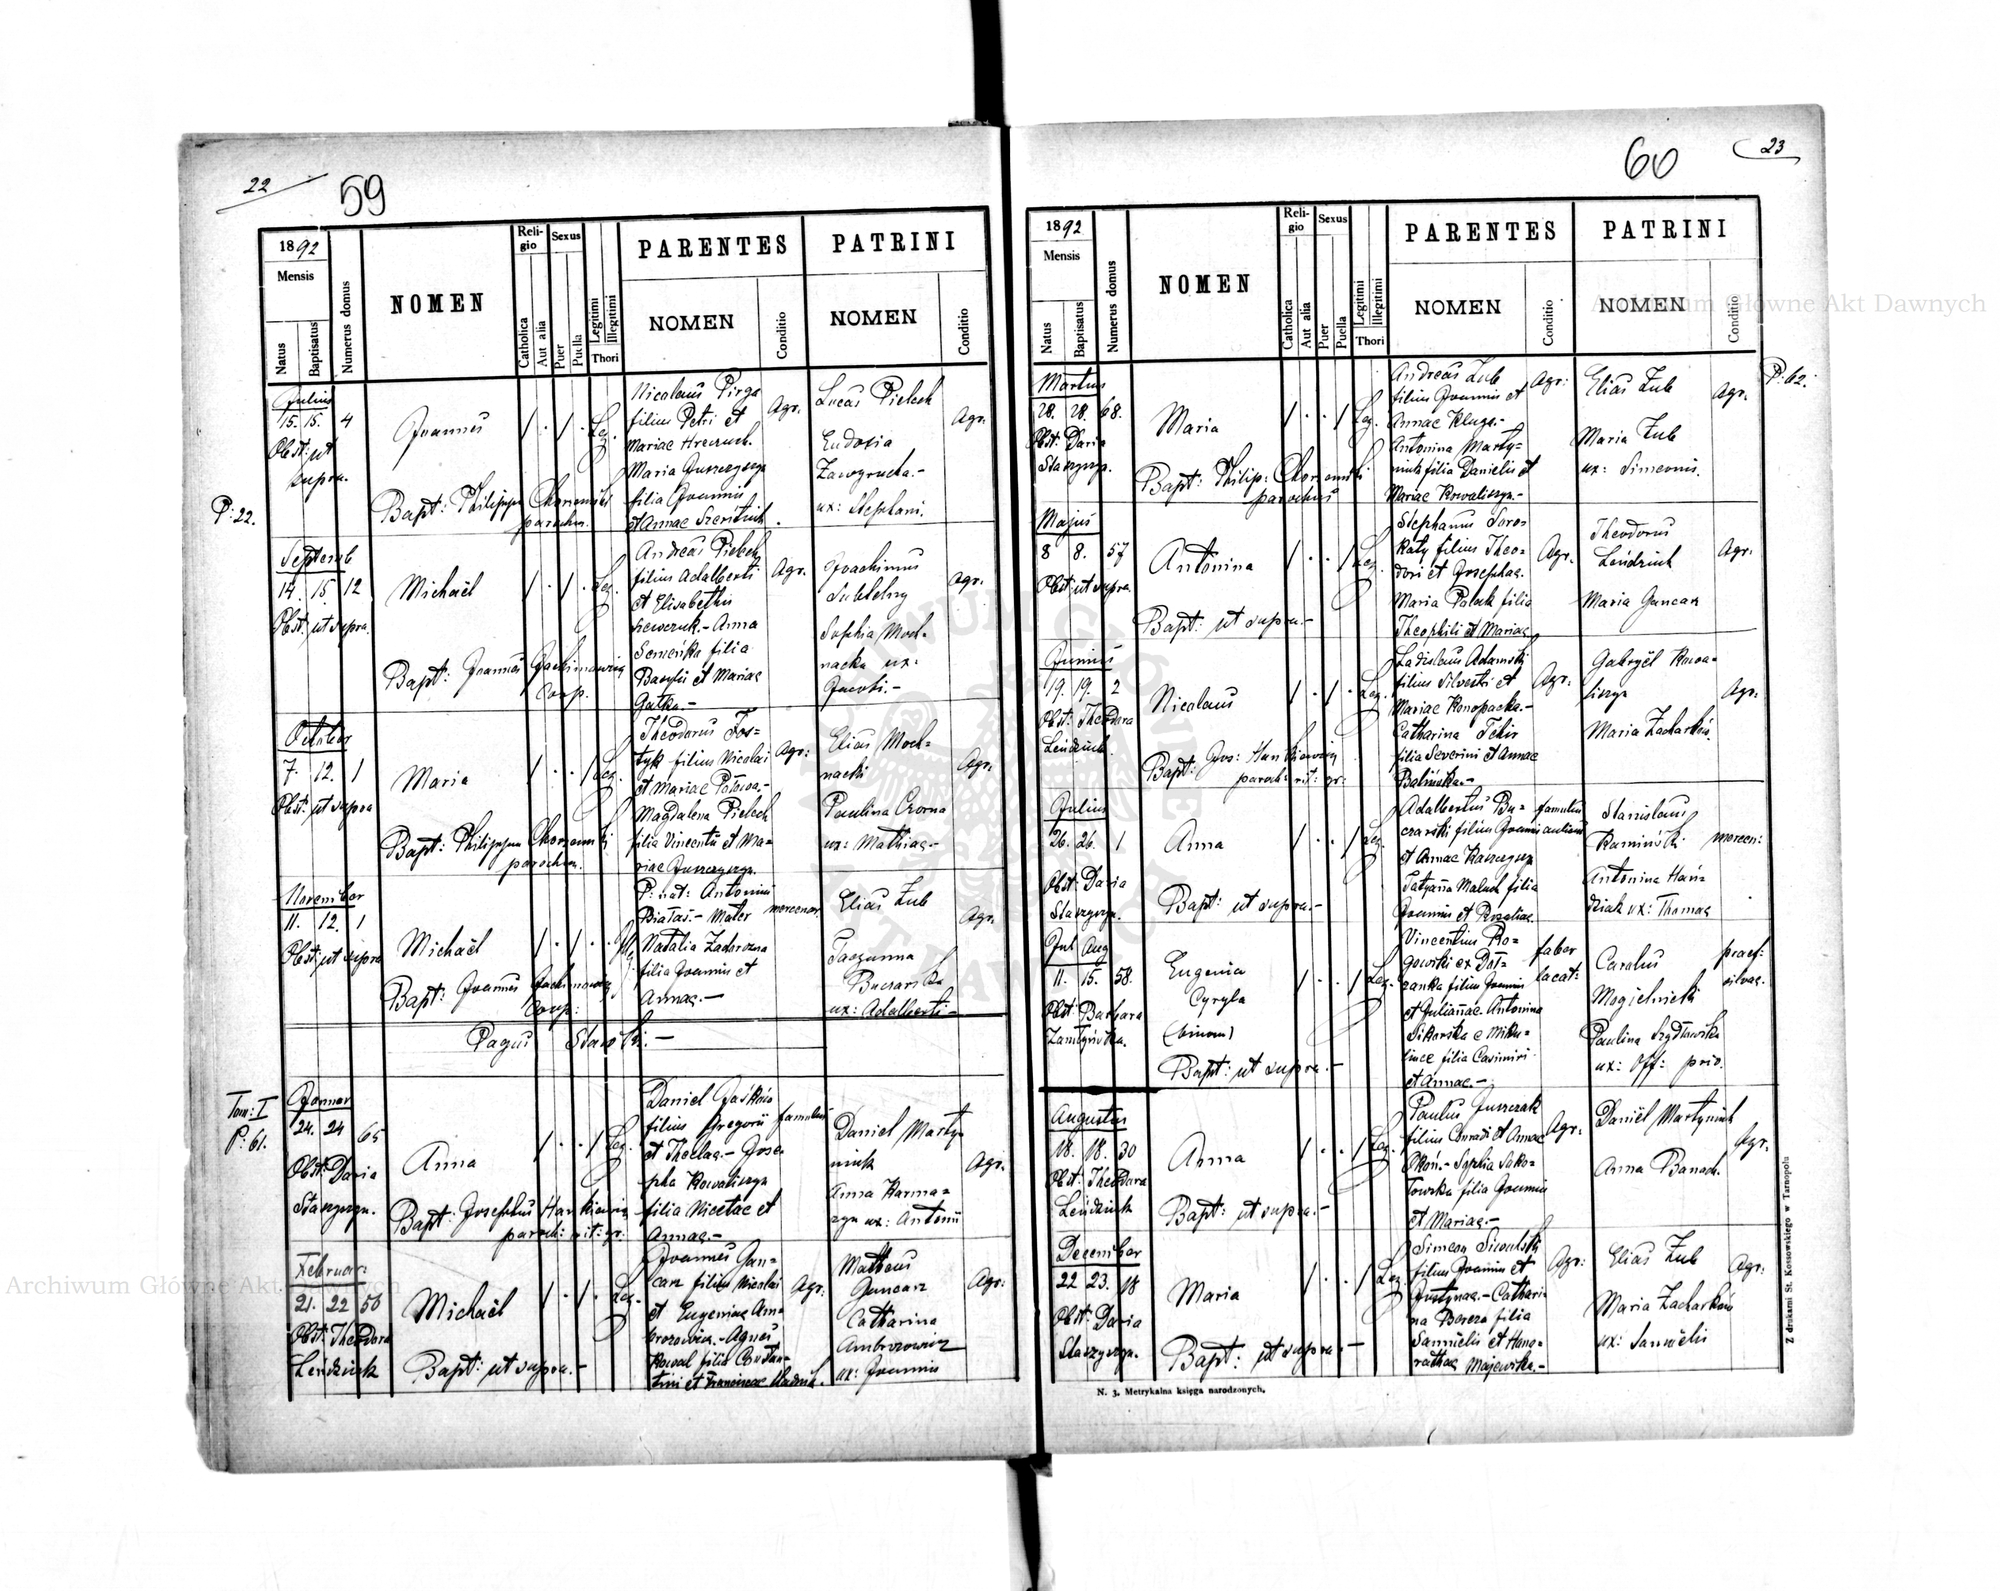 22
59
1892
Mensis
Natus
Baptisatus
Numerus domus
NOMEN
Reli-
gio
Catholica
Aut alia
Sexus
Puer
Puella
Legitimi
Illegitimi
Thori
PARENTES
NOMEN
Conditio
PATRINI
NOMEN
Conditio
Julius
15. 15. 4
Obst: ut
supra.
Joannes
Leg.
Bapt: Philippus Chorzemski
parochus.
Nicolaus Pirga
filius Petri et
Mariae
Maria Juszczyszyn
filia Joannis
et Annae
Agr.
Lucas Pielech
Eudoxia
ux: Stephani.
Agr.
P: 22.
Septemb
14. 15. 12
Obst: ut supra.
Michaël
Leg.
Bapt: Joannes Jachimowicz
Coop.
Andreas Pielech
filius Adalberti
et Elisabethis
Szewczuk.- Anna
Semeńka filia
Basylii et Mariae
Gatka.-
Agr.
Joachimus
Subtelny
Sophia Moch-
nacka ux:
Jacobi.-
Agr.
October
7. 12. 1
Obst: ut supra
Maria
Leg.
Bapt: Philippus Chorzemski
parochus.
Theodorus Fos-
tyk filius Nicolai
et Mariae
Magdalena Pielech
filia Vincentii et Ma-
riae Juszczyszyn.
Agr:
Elias Moch-
nacki
Paulina Czorna
ux: Mathiae.-
Agr.
November
11. 12. 1
Obst: ut supra
Michaël
Illeg.
Bapt: Joannes Jachimowicz
Coop:
P: nat: Antonius
Białas.- Mater
Natalia Zadorozna
filia Joannis et
Annae.-
mercenar.
Elias Zub
Parzunna
Bucsarska
ux: Adalberti-
Agr.
Pagus Stawki.-
Tom: I
P: 61.
Januar
24. 24 65
Obst: Daria
Staszyszyn.
Anna
Leg.
Bapt: Josephus Hankiewicz
paroch: rit: gr.
Daniel Jaśków
filius Gregorii
et Theclae.- Jose-
pha Kowaliszyn
filia Nicetae et
Annae.-
famulus
Daniel Marty-
niuk
Anna Karma-
zyn ux: Antonii
Agr.
Februar:
21. 22 50
Obst: Theodora
Leńdziuk
Michaël
Leg.
Bapt: ut supra.-
Joannes Gun-
carz filius Nicolai
et Eugeniae Am-
brozowicz.- Agnes
Kowal filia Constan-
tini et Franciscae
Agr.
Mattheus
Guncarz
Catharina
Ambrozowicz
ux: Joannis
Agr.
60
23
1892
Mensis
Natus
Baptisatus
Numerus domus
NOMEN
Reli-
gio
Catholica
Aut alia
Sexus
Puer
Puella
Legitimi
Illegitimi
Thori
PARENTES
NOMEN
Conditio
PATRINI
NOMEN
Conditio
P: 62.
Martius
28. 28. 68.
Obst: Daria
Staszyszyn.
Maria
Leg.
Bapt: Philip: Chorzemski
parochus
Andreas Zub
filius Joannis et
Annae Kluga.-
Antonina Marty-
niuk filia Danielis et
Mariae Kowaliszyn.-
Agr:
Elias Zub
Maria Zub
ux: Simeonis.
Agr.
Majus
8 8. 57
Obst: ut supra.
Antonina
Leg.
Bapt: ut supra.-
Stephanus Soro-
katy filius Theo-
dori et Josephae.
Maria Polak filia
Theophili et Mariae
Agr.
Theodorus
Leńdziuk
Maria Guncarz
Agr.
Junius
19. 19. 2
Obst: Theodora
Leńdziuk
Nicolaus
Leg.
Bapt: Jos: Hankiewicz
paroch: rit: gr:
Ladislaus Adamski
filius Silvestri et
Mariae Konopacka.-
Catharina Fehir
filia Severini et Annae
Balińska.-
Agr.
Gabryël Kowa-
liszyn
Maria Zacharków.
Agr.
Julius
26. 26. 1
Obst: Daria
Staszyszyn.
Anna
Leg.
Bapt: ut supra.-
Adalbertus Bu-
czarski filius Joannis
et Annae Kaszczyszyn
Tatyanna Maluch filia
Joannis et Rosaliae.
famulus
aulicus
Stanislaus
Kamiński
Antonina Hań-
dziak ux: Thomae
mercen:
Jul Aug
11. 15. 58.
Obst: Barbara
Eugenia
Cyryla
(binom)
Leg.
Bapt: ut supra.-
Vincentius Ro-
gowski ex Doł-
żanka filius Joannis
et Julianae. Antonina
Sikorska e Miku-
lince filia Casimiri
et Annae.-
faber
lacat:
Carolus
Mogielnicki
Paulina Szydłowska
ux: Off: priv.
praef:
silvae.
Augustus
18. 18. 30
Obst: Theodora
Leńdziuk
Anna
Leg.
Bapt: ut supra.-
Paulus Juszczak
filius Conradi et Annae
Okoń.- Sophia Soko-
łowska filia Joannis
et Mariae.-
Agr:
Daniël Martyniuk
Anna Banach.
Agr.
December
22 23. 18
Obst: Daria
Staszyszyn.
Maria
Leg.
Bapt: ut supra.-
Simeon Siwulski
filius Joannis et
Justynae.- Cathari-
na Bereza filia
Samuëlis et Hono-
rathae Majewska.-
Agr:
Elias Zub
Maria Zacharków
ux: Samuëlis
Agr.
N. 3. Metrykalna księga narodzonych.
Z drukarni St. Kossowskiego w Tarnopolu
Archiwum Główne Akt Dawnych
Archiwum Główne Akt Dawnych
ARCHIWUM GŁÓWNE AKT DAWNYCH